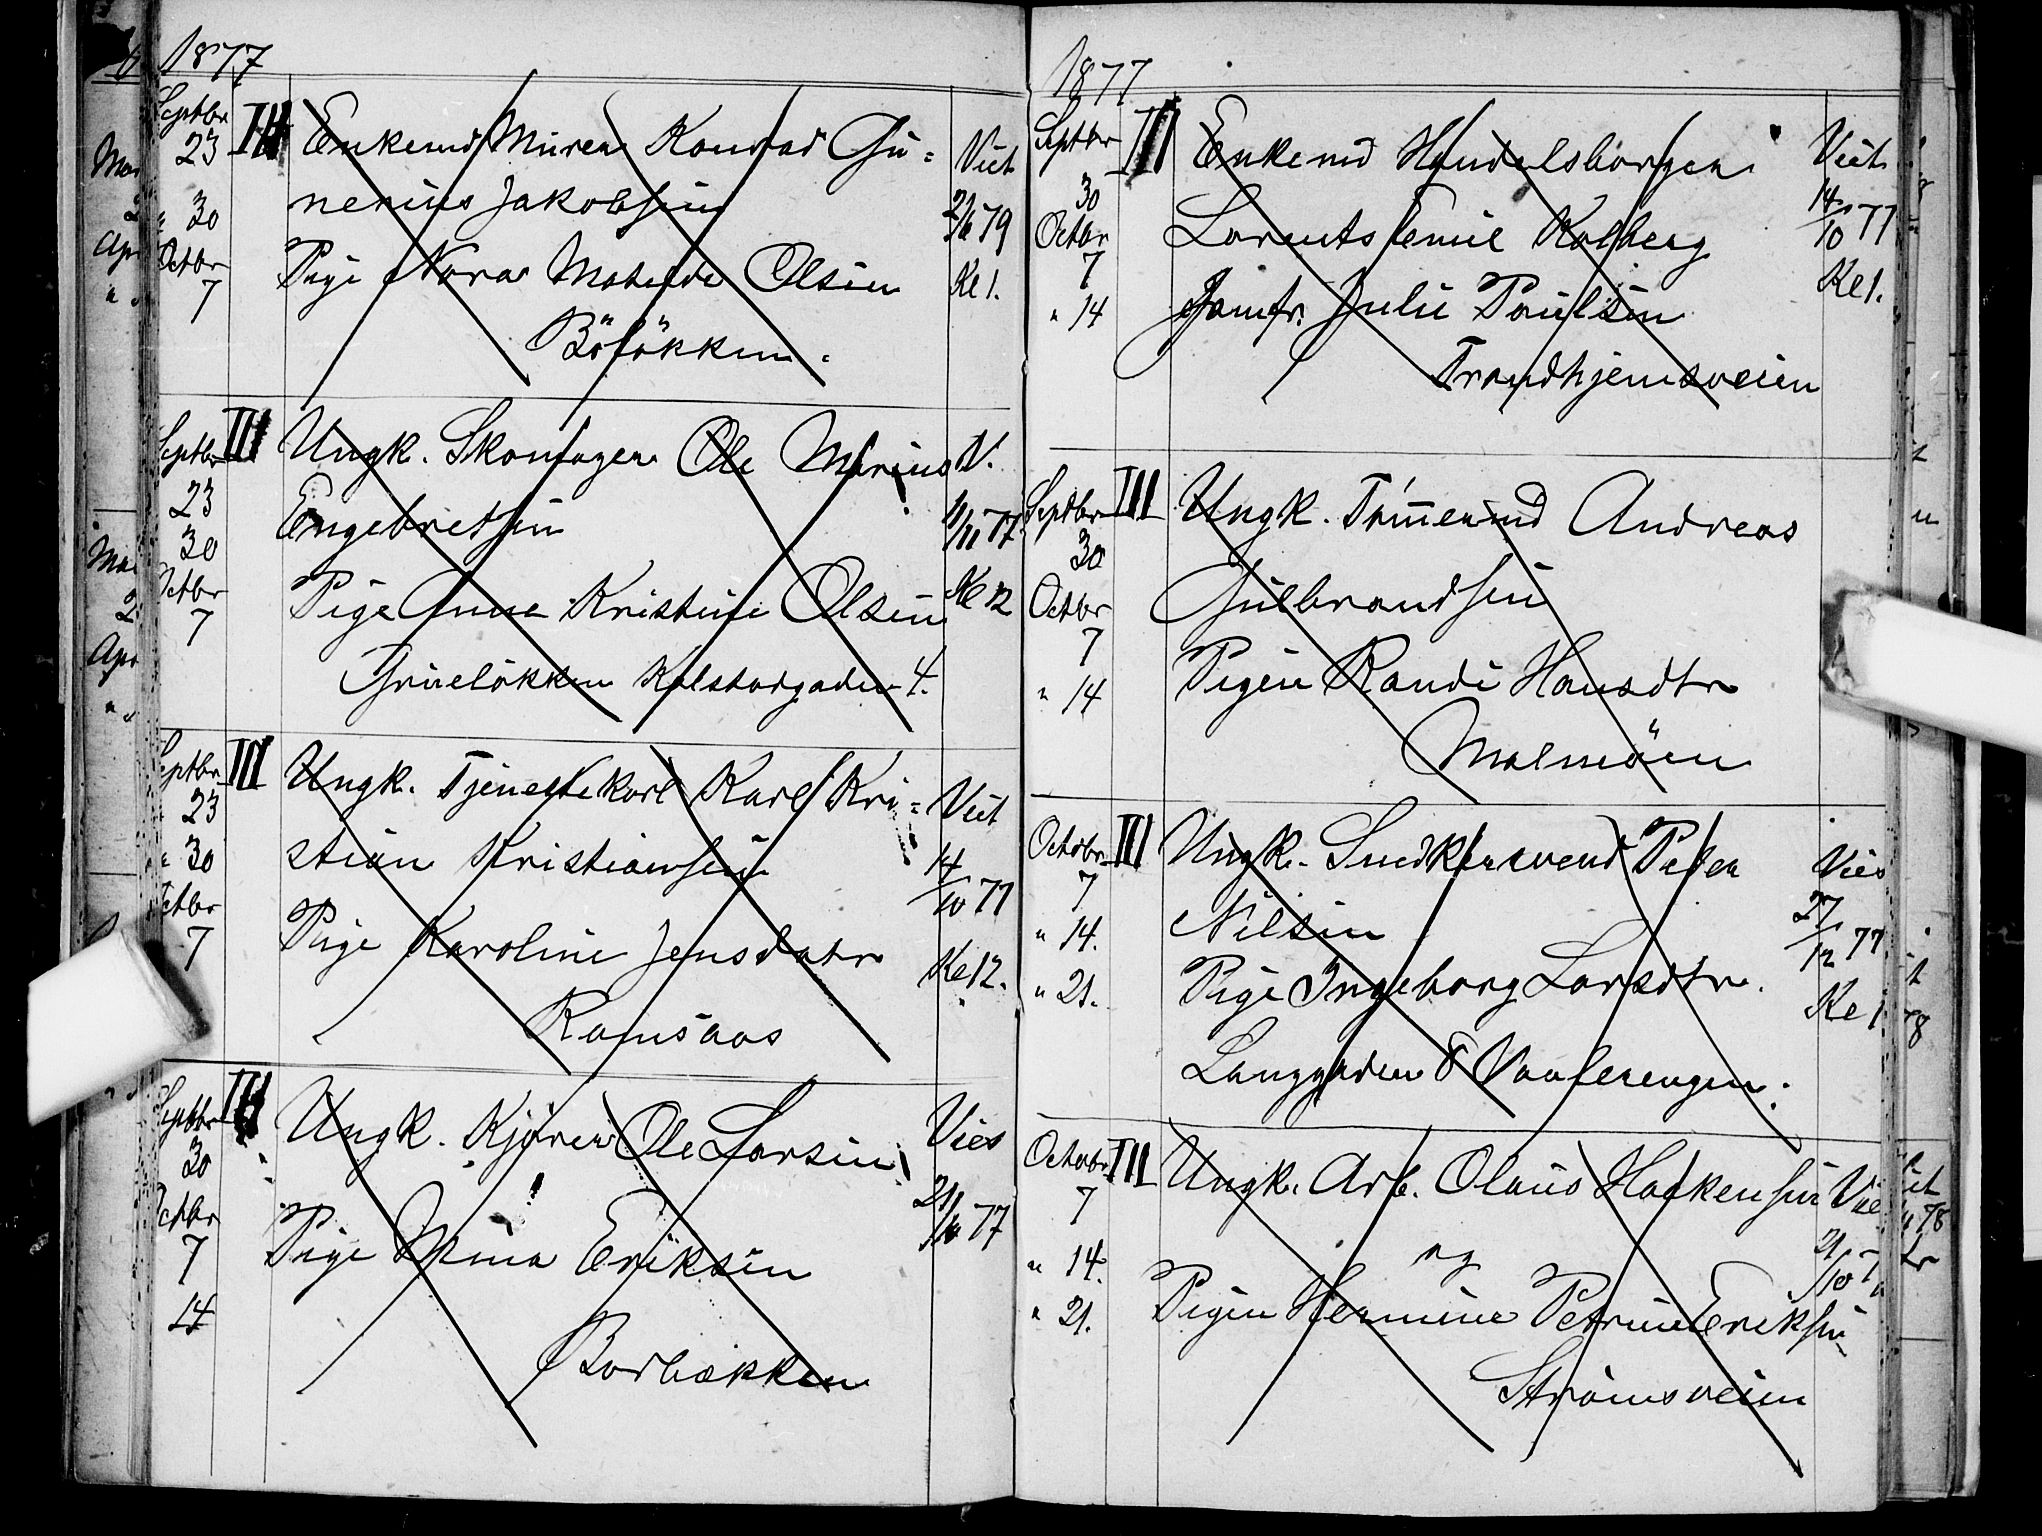 1877
Septbr 23 III Enkemd Murer Konrad Gu= Viet
" 30 nerius Jakobsen 79
Octbr 7 Pige Nora Matilde Olsen Kl 1.
Böløkken.
Septbr III Ungk. Skomager Ole Marius V.
23 Engebretsen 11/11 77
30
Octbr 7 Pige Anne Kristine Olsen Kl 12
Grüneløkken 4.
Septbr III Ungk. Tjenestekarl Karl Kri= Viet
" 23
" 30 stian Kristiansen 14/10 77
Octbr 7 Pige Karoline Jensdatr Kl 12.
Ramsaas
Septbr III Ungk. Kjører Ole Larsen Vies
30
Octbr 7 Pige Mina Eriksen 21/10 77
14 Borbækken
1877
Septbr III Enkemd Handelsborger Viet
30
Octbr Lorents Emil Kolberg 14/10 77
7
" 14 Jomfr. Julie Paulsen Kl 1.
Trondhjemsveien
Septbr III Ungk. Tømermd Andreas
30
Octbr Gulbrandsen
7
" 14 Pigen Randi Hansdtr
Malmøen
Octobr III Ungk. Snedkersvend Peder Vies
7
" 14. Nilsen 27/12 77
" 21. Pige Ingeborg Larsdtr. Kl 1
Langgaden 8 Vaalerengen.
Octobr III Ungk. Arb. Olaus Haakensen
7
" 14. og 21/10 7
" 21. Pigen Hermine Petrine Eriksen
Strømsveien